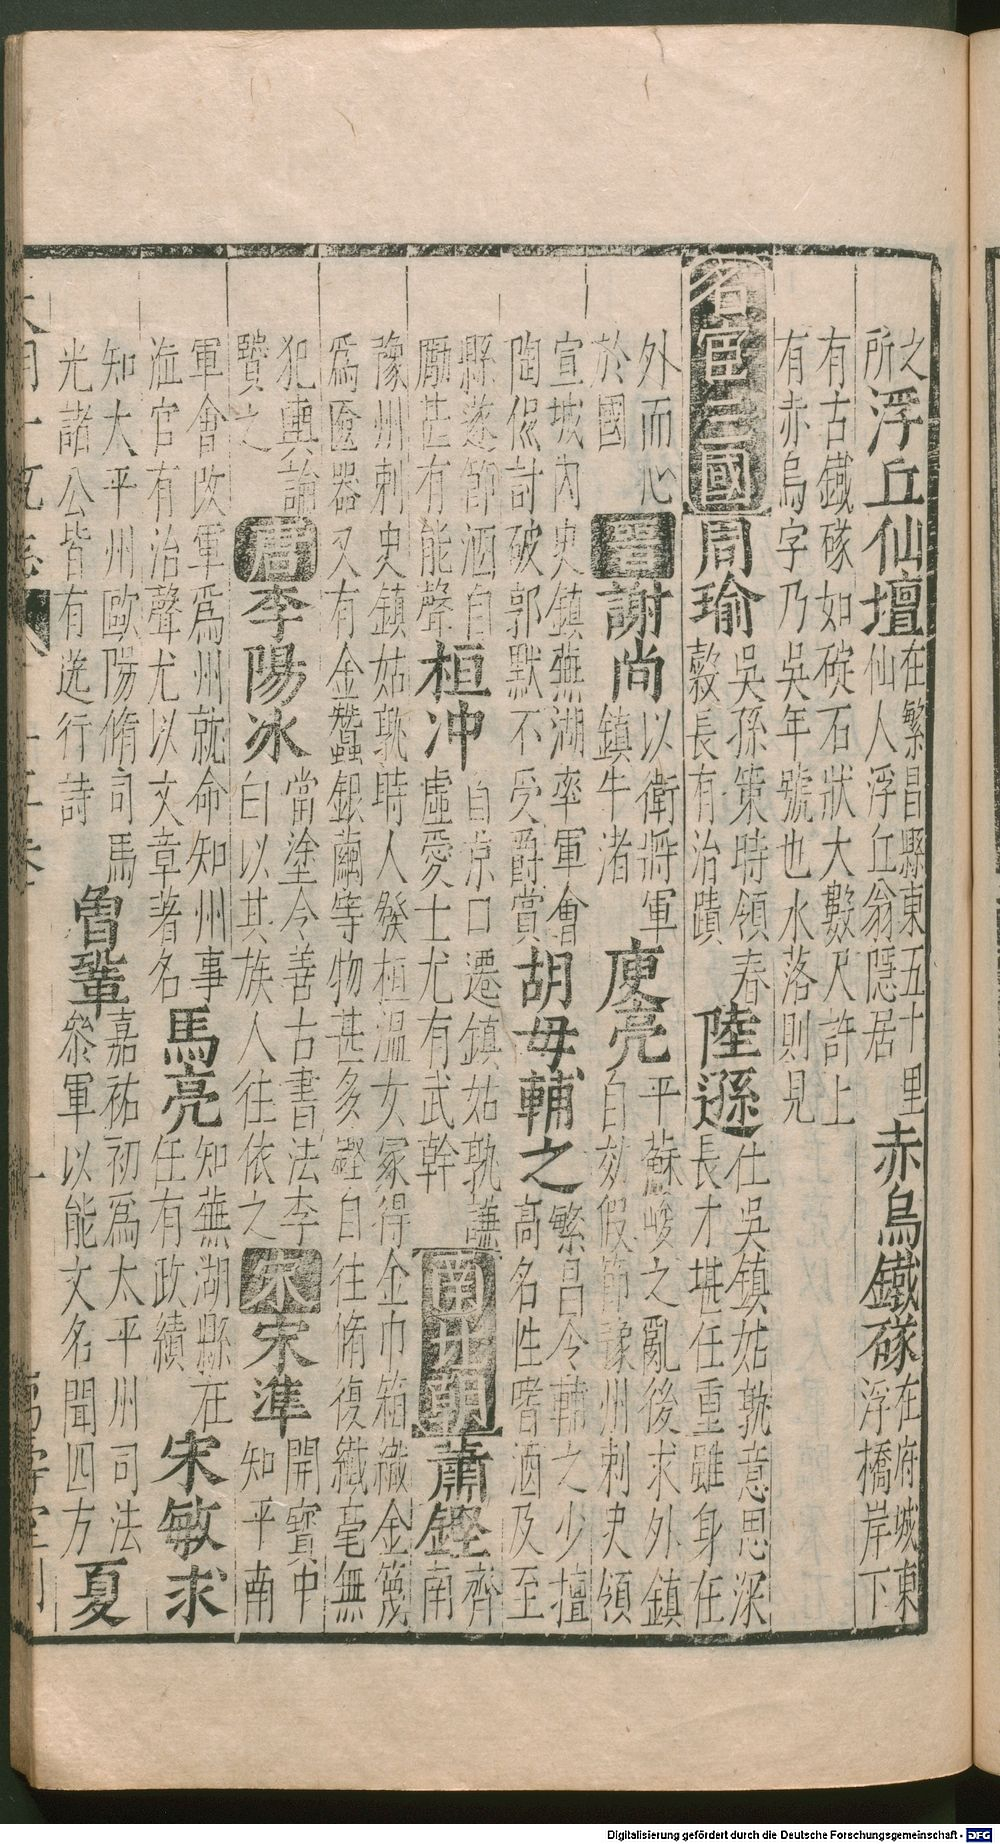 之所浮丘仙壇在繁昌縣東五十里仙人浮丘翁隱居赤烏鐵磜在府城東浮橋岸下
有古鐵磜如碇石狀大數尺許上有赤烏字乃吳年號也水落則見
名宦三國周瑜吳孫策時領春穀長有治蹟陸遜仕吳鎮姑孰意思深長才堪任重雖身在
外而心於國晉謝尚以衛將軍鎮牛渚庾亮平蘇峻之亂後求外鎮自効假節豫州刺史領
宣城內史鎮蕪湖率軍會陶侃討破郭默不受爵賞胡毋輔之繁昌令輔之少擅高名性嗜酒及至
縣遂節酒自勵甚有能聲桓冲自京口遷鎮姑孰謙虛愛士尤有武幹南北朝蕭鏗齊南
豫州刺史鎮姑孰時人發桓温女冢得金巾箱織金篾爲匳器又有金蠶銀繭等物甚多鏗自往脩復纖毫無
犯輿論賢之唐李陽冰當塗令善古書法李白以其族人往依之宋宋準開寶中知平南
軍會改軍爲州就命知州事涖官有治聲尤以文章著名馬亮知蕪湖縣在任有政績宋敏求
知太平州歐陽脩司馬光諸公皆有送行詩曾鞏嘉祐初爲太平州司法參軍以能文名聞四方夏
Digitalisierung gefördert durch die Deutsche Forschungsgemeinschaft - DFG